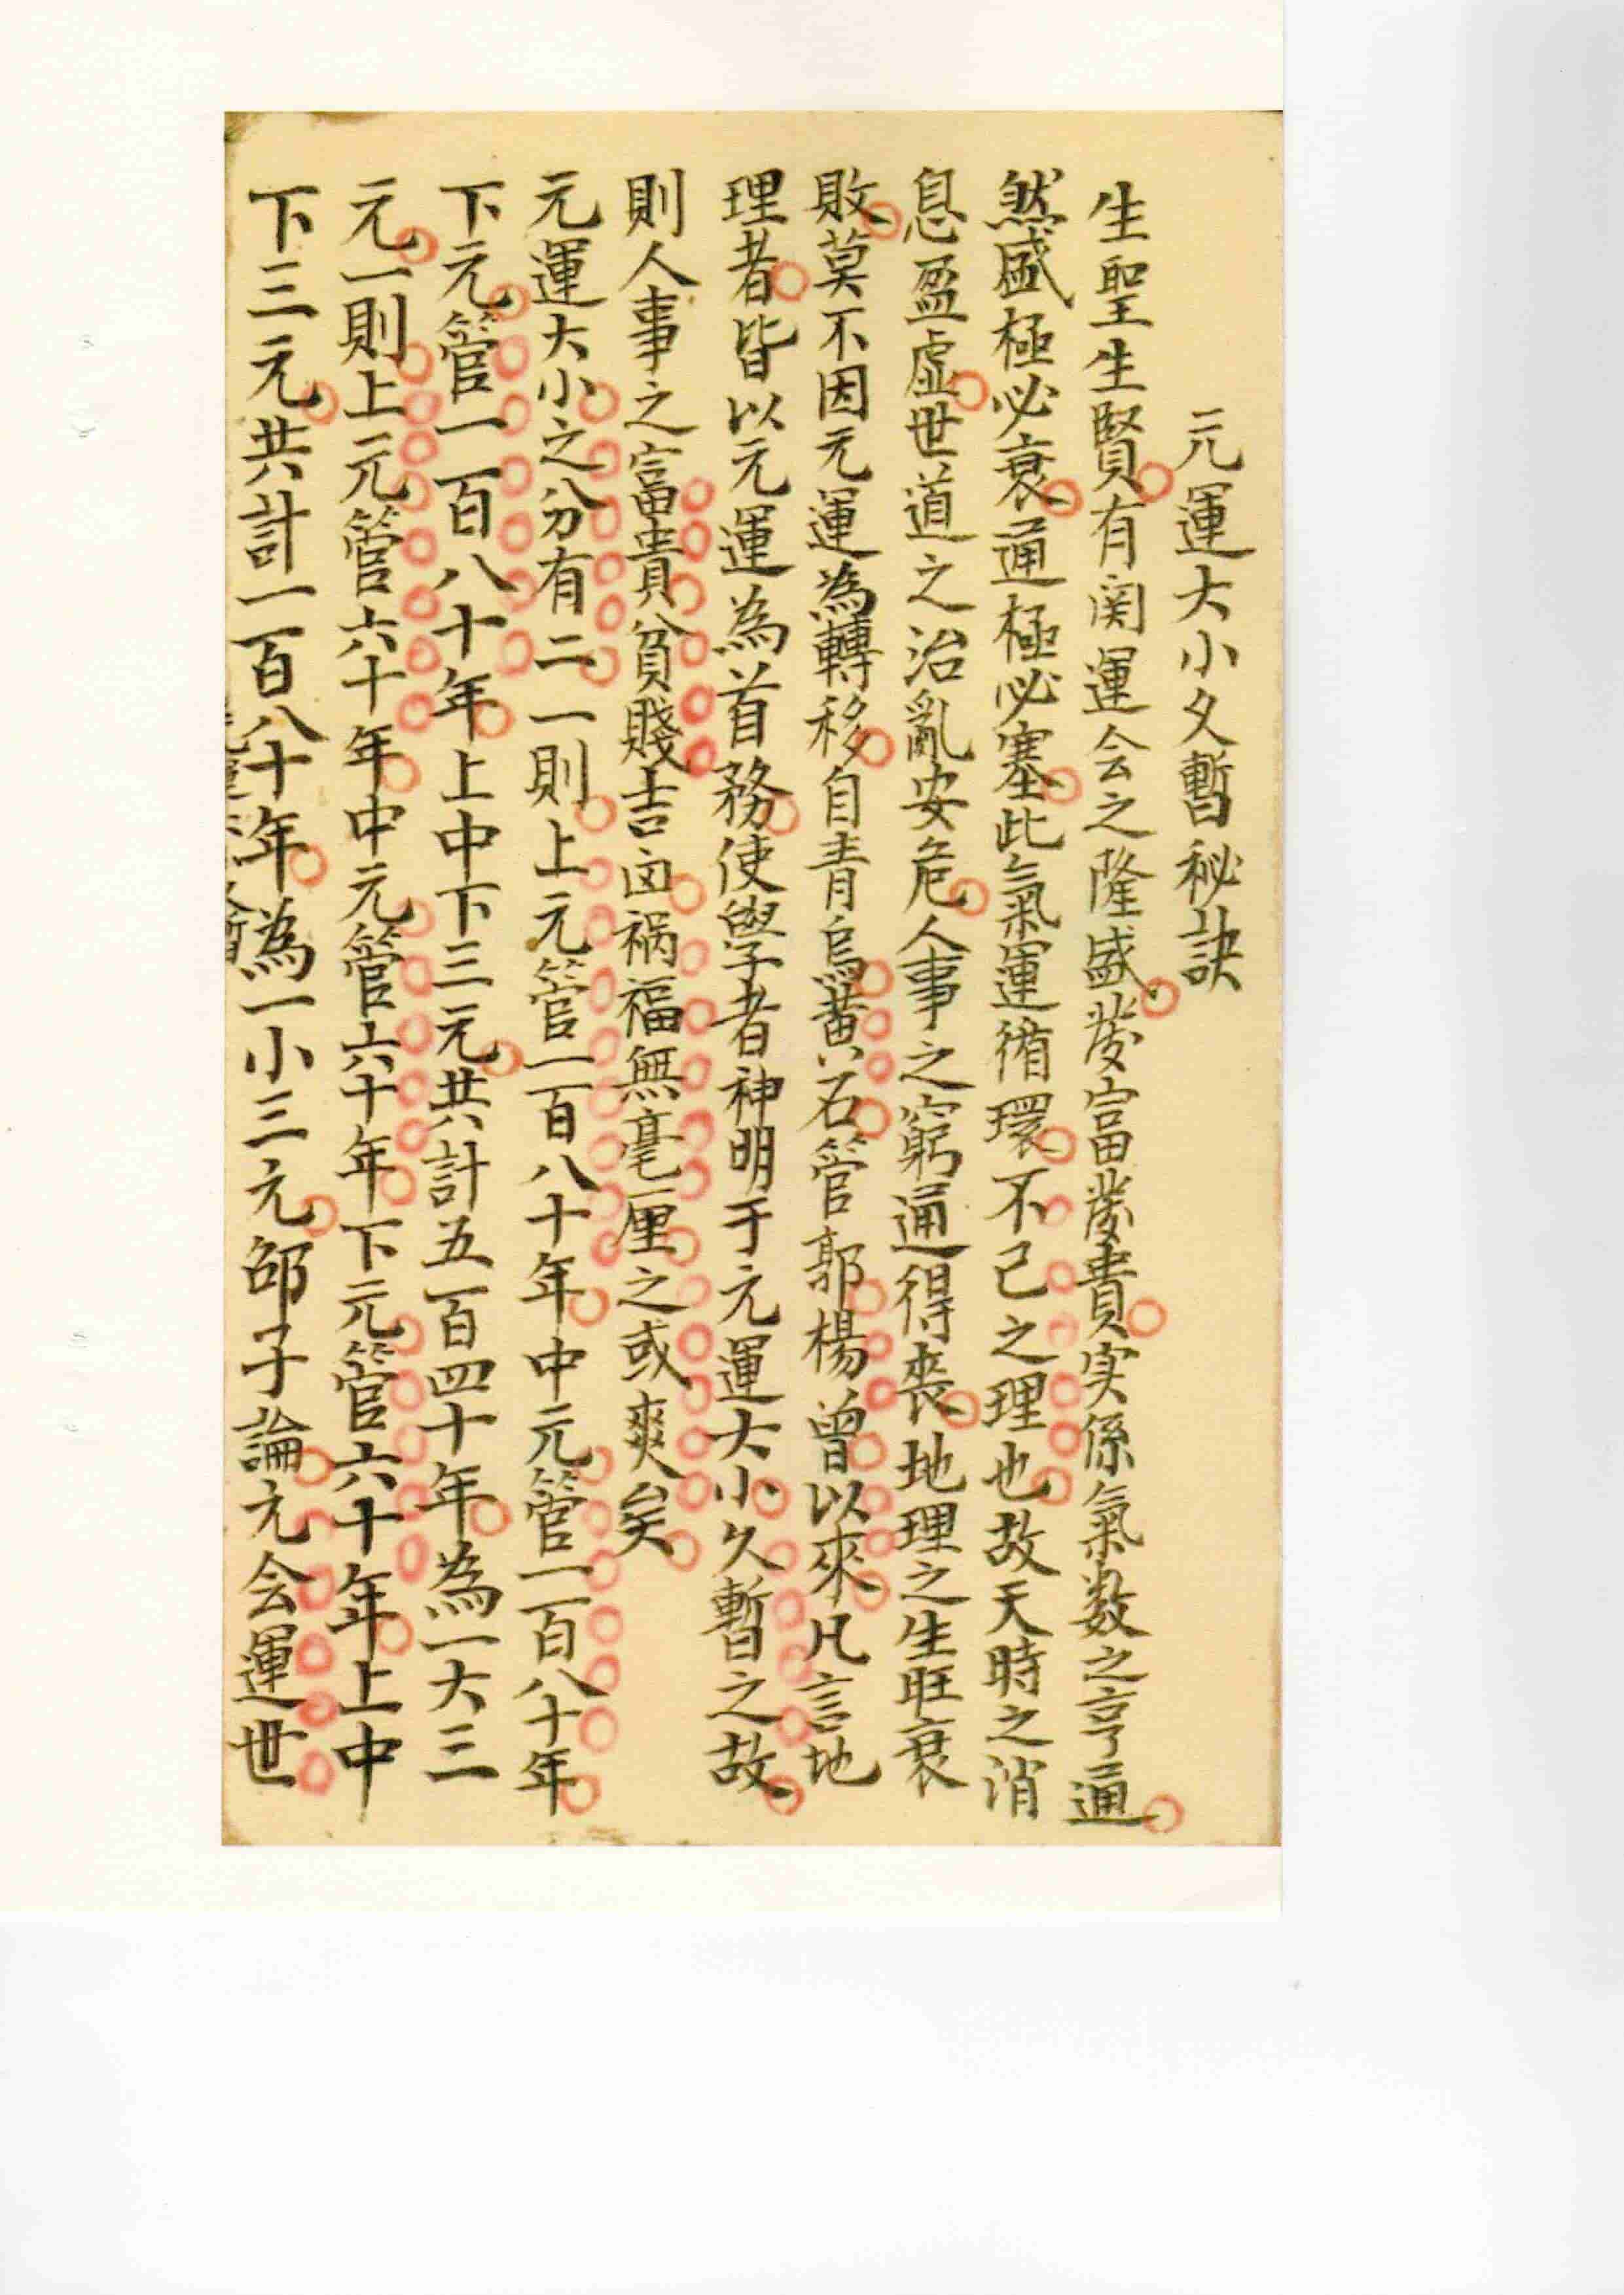 元運大小久暫秘訣
生聖生賢有関運会之隆盛發富發貴实係氣数之亨通
然盛極必衰通極必塞此氣運循環不已之理也故天時之消
息盈虛世道之治亂安危人事之窮通得喪地理之生旺衰
敗莫不因元運為轉移自青烏黃石管郭楊曾以來凡言地
理者皆以元運為首務使學者神明于元運大小久暫之故
則人事之富貴貧賤吉凶禍福無毫厘之或爽矣
元運大小之分有二一則上元管一百八十年中元管一百八十年
下元管一百八十年上中下三元共計五百四十年為一大三
元一則上元管六十年中元管六十年下元管六十年上中
下三元共計一百八十年為一小三元邵子論元会運世